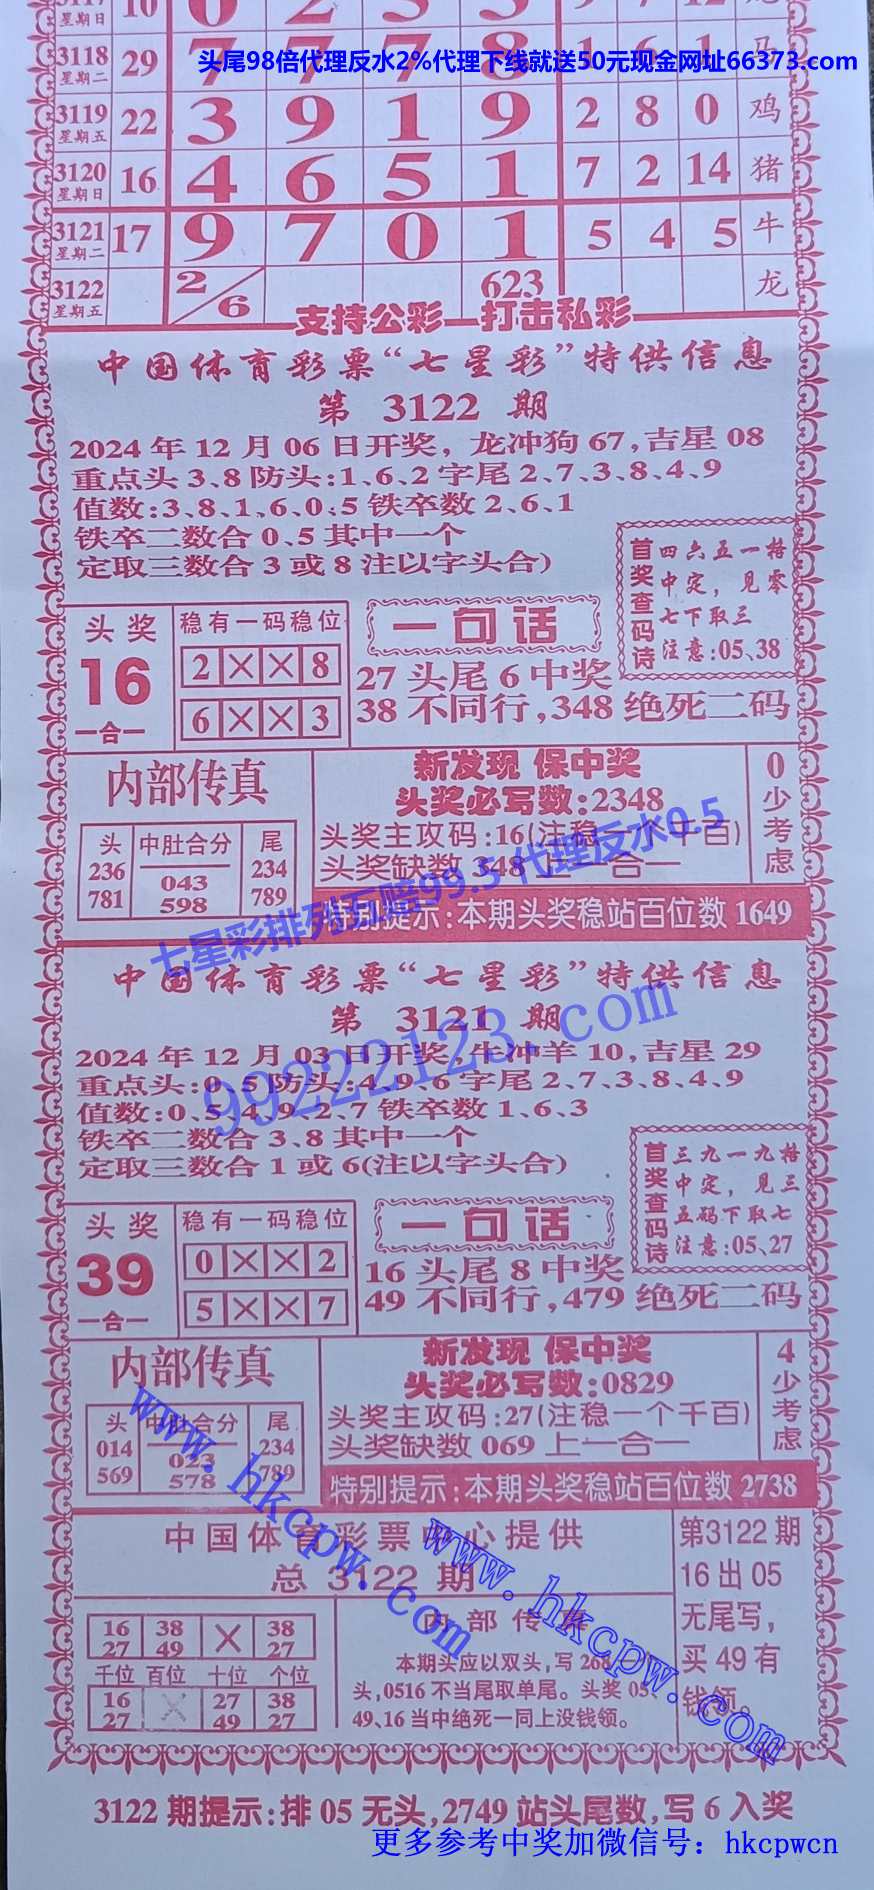 星期日 10 0 2 3 3 9 7 12
3118 星期二 29 7 7 7 8 1 6 1 马
头尾98倍代理反水2%代理下线就送50元现金网址66373.com
3119 星期五 22 3 9 1 9 2 8 0 鸡
3120 星期日 16 4 6 5 1 7 2 14 猪
3121 星期二 17 9 7 0 1 5 4 5 牛
3122 星期五 2/6 623 龙
支持公彩—打击私彩
中国体育彩票“七星彩”特供信息
第 3122 期
2024年12月06日开奖,龙冲狗67,吉星08
重点头3、8防头:1、6、2字尾2、7、3、8、4、9
值数:3、8、1、6、0、5铁卒数2、6、1
铁卒二数合0、5其中一个
定取三数合3或8注以字头合)
首奖查码诗
四六五一格
中定，见零
七下取三
注意:05、38
头奖
16
一合一
稳有一码稳位
2××8
6××3
一句话
27头尾6中奖
38不同行,348绝死二码
内部传真
头 中肚合分 尾
236 043 234
781 598 789
新发现 保中奖
头奖必写数:2348
头奖主攻码:16(注稳一个千百)
头奖缺数348上一合一
0少考虑
特别提示:本期头奖稳站百位数1649
七星彩排列五赔99.5 代理反水0.5
中国体育彩票“七星彩”特供信息
第 3121 期
99222123.com
2024年12月03日开奖,牛冲羊10,吉星29
重点头:0、5防头:4、9、6字尾2、7、3、8、4、9
值数:0、5、4、9、2、7铁卒数1、6、3
铁卒二数合3、8其中一个
定取三数合1或6(注以字头合)
首奖查码诗
三九一九格
中定，见三
五码下取七
注意:05、27
头奖
39
一合一
稳有一码稳位
0××2
5××7
一句话
16头尾8中奖
49不同行,479绝死二码
内部传真
头 中肚合分 尾
014 023 234
569 578 789
新发现 保中奖
头奖必写数:0829
头奖主攻码:27(注稳一个千百)
头奖缺数069上一合一
4少考虑
特别提示:本期头奖稳站百位数2738
www.hkcpw.com
中国体育彩票中心提供
总 3122 期
16 38 × 38
27 49 27
千位 百位 十位 个位
16 × 27 38
27 49 27
内部传真
本期头应以双头,写268
头,0516不当尾取单尾。头奖05、
49、16当中绝死一同上没钱领。
第3122期
16出05
无尾写，
买49有
钱领。
www.hkcpw.com
3122期提示:排05无头,2749站头尾数,写6入奖
更多参考中奖加微信号：hkcpwcn